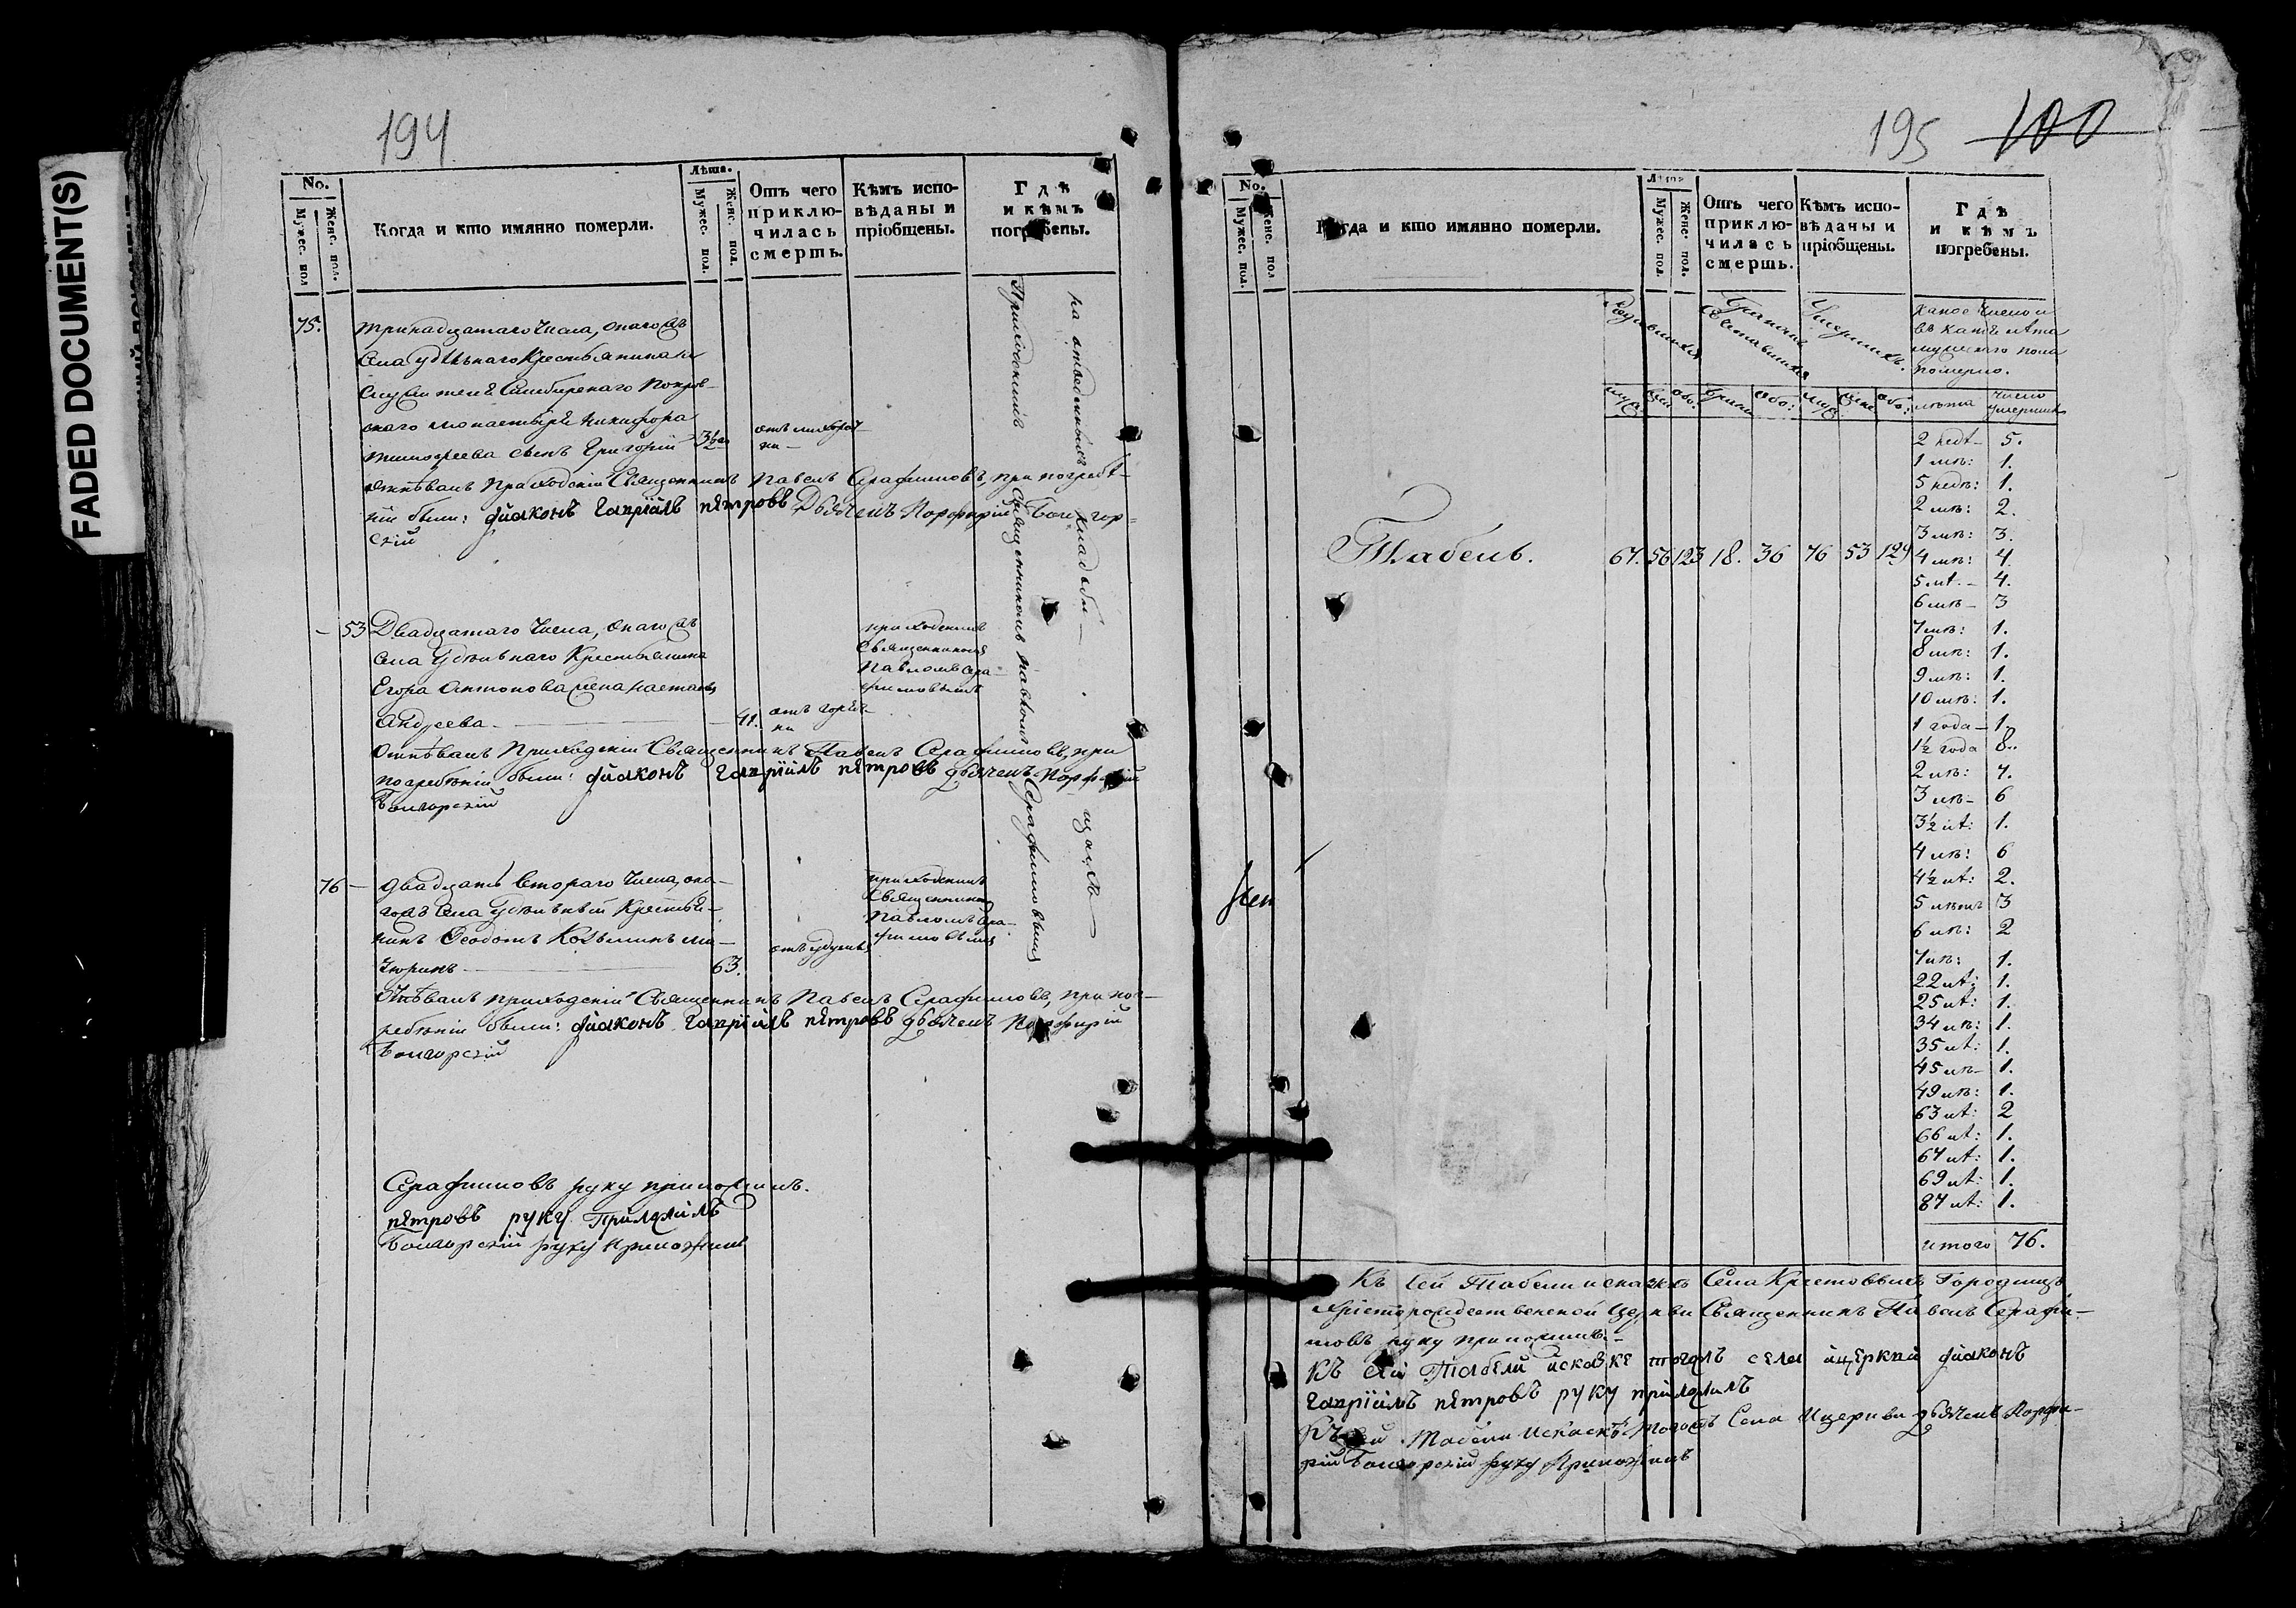 FADED DOCUMENT(S)
194
No.
Мужес. пол
Женс. пол.
Когда и кто имянно померли.
Лѣта.
Мужес. пол.
Женс. пол.
Отъ чего приклю-
чилась
смерть.
Кѣмъ испо-
вѣданы и
пріобщены.
Гдѣ
и кѣмъ
погребены.
75.
тринадцатаго числа, онаго жъ
села удѣльнаго крестьянина и
служителя Симбирскаго Покров-
скаго монастыря Никифора
Тимофеева сынъ Григорій
3½
отъ лихорад-
ки
Отпѣвалъ приходскій Священникъ Павелъ Серафимовъ, при погребе-
ніи были: діаконъ Гавріилъ Петровъ Дьячекъ Порфирій Болгор-
скій
53
Двадцатаго числа, онаго жъ
села удѣльнаго Крестьянина
Егора Антонова жена Настасья
Андреева
41.
отъ горяч-
ки
приходскимъ
Священникомъ
Павломъ Сера-
фимовымъ
Отпѣвалъ Приходскій Священникъ Павелъ Серафимовъ, при
погребеніи были: діаконъ Гавріилъ Петровъ дьячекъ Порфирій
Болгорскій
76
двадцать втораго числа, она-
гожъ села удѣльный Крестья-
нинъ Феодотъ Козьминъ Ма-
чюринъ
63.
отъ удушья
приходскимъ
Священникомъ
Павломъ Сера-
фимовымъ
Отпѣвалъ приходскій Священникъ Павелъ Серафимовъ, при пог-
ребеніи были: діаконъ Гавріилъ Петровъ дьячекъ Порфирій
Болгорскій
Приходскимъ Священникомъ Павломъ Серафимовымъ
на отведенномъ кладби-
щѣ
Серафимовъ руку приложилъ.
Петровъ руку Приложилъ
Болгорскій руку приложилъ
195 100
No.
Мужес. пол.
Женс. пол
Когда и кто имянно померли.
Лѣта
Мужес. пол.
Женс. пол.
Отъ чего
приклю-
чилась
смерть.
Кѣмъ испо-
вѣданы и
пріобщены.
Гдѣ
и кѣмъ
погребены.
Родившихся
Бракомъ
сочетавшихся
Умершихъ.
Какое число и
въ какія лѣта
мужскаго пола
померло.
муж:
жен:
обо:
браки
обо:
муж:
жен:
обо:
лѣта
число
умершихъ
Табель.
67. 56 123 18. 36 76 53 129
2 недѣ- 5.
1 мѣ: 1.
5 недѣ: 1.
2 мѣ: 2.
3 мѣ: 3.
4 мѣ: 4.
5 мѣ- 4.
6 мѣ- 3
7 мѣ: 1.
8 мѣ: 1.
9 мѣ: 1.
10 мѣ: 1.
1 года- 1.
1½ года 8.
2 лѣ: 7.
3 лѣ- 6
3½ лѣ: 1.
4 лѣ: 6
4½ лѣ: 2.
5 лѣтъ 3
6 лѣ: 2
7 лѣ: 1.
22 лѣ: 1.
25 лѣ: 1.
34 лѣ: 1.
35 лѣ: 1.
45 лѣ- 1.
49 лѣ: 1.
63 лѣ: 2
66 лѣ: 1.
67 лѣ: 1.
69 лѣ: 1.
87 лѣ: 1.
итого 76.
Къ сей Табели и сказкѣ Села Крестовыхъ Городищъ
Христорождественской Церкви Священникъ Павелъ Серафи-
мовъ руку приложилъ.
Къ сей Табели исказке тогожъ села ицеркви діаконъ
Гавріилъ Петровъ руку приложилъ
Къ сей Табели исказкѣ тогожъ Села Ицеркви дьячекъ Порфи-
рій Болгорскій руку Приложилъ